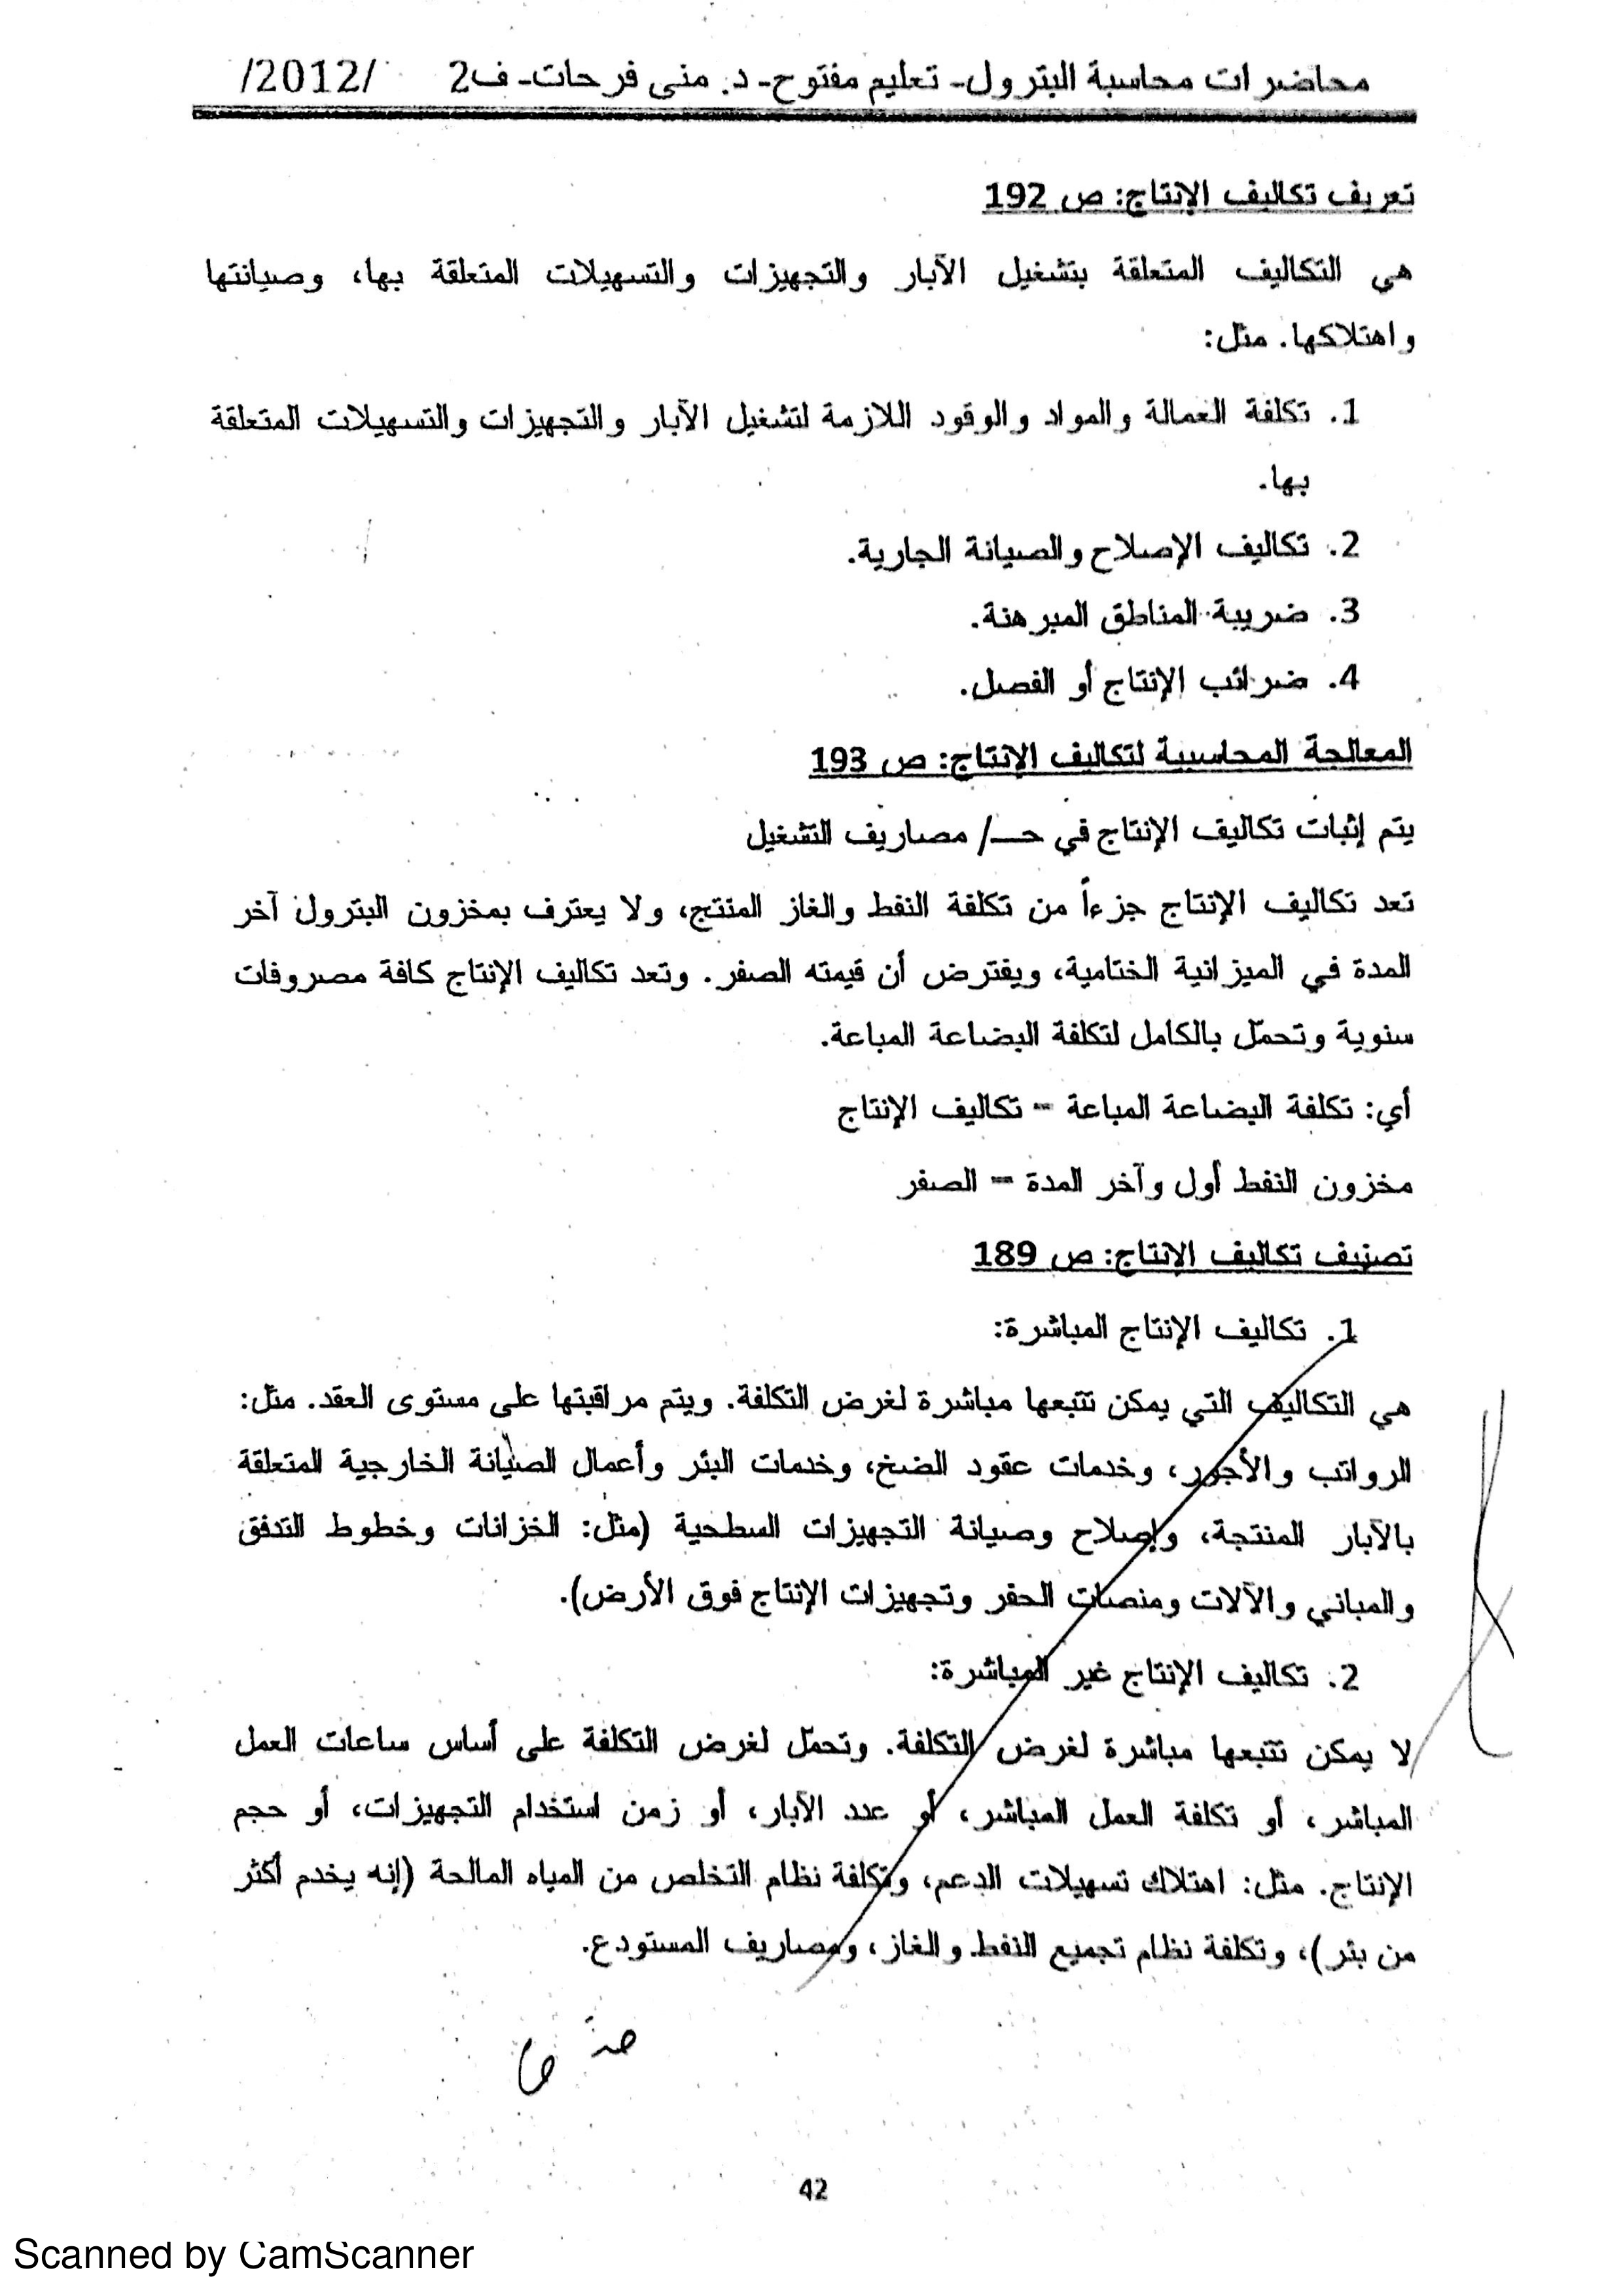 محاضرات محاسبة البترول- تعليم مفتوح- د. منى فرحات- ف2 /2012/
تعريف تكاليف الإنتاج: ص 192
هي التكاليف المتعلقة بتشغيل الآبار والتجهيزات والتسهيلات المتعلقة بها، وصيانتها
واهتلاكها. مثل:
1. تكلفة العمالة والمواد والوقود اللازمة لتشغيل الآبار والتجهيزات والتسهيلات المتعلقة
بها.
2. تكاليف الإصلاح والصيانة الجارية.
3. ضريبة المناطق المبرهنة.
4. ضرائب الإنتاج أو الفصل.
المعالجة المحاسبية لتكاليف الإنتاج: ص 193
يتم إثبات تكاليف الإنتاج في حـ/ مصاريف التشغيل
تعد تكاليف الإنتاج جزءاً من تكلفة النفط والغاز المنتج، ولا يعترف بمخزون البترول آخر
المدة في الميزانية الختامية، ويفترض أن قيمته الصفر. وتعد تكاليف الإنتاج كافة مصروفات
سنوية وتحمّل بالكامل لتكلفة البضاعة المباعة.
أي: تكلفة البضاعة المباعة = تكاليف الإنتاج
مخزون النفط أول وآخر المدة = الصفر
تصنيف تكاليف الإنتاج: ص 189
1. تكاليف الإنتاج المباشرة:
هي التكاليف التي يمكن تتبعها مباشرة لغرض التكلفة. ويتم مراقبتها على مستوى العقد. مثل:
الرواتب والأجور، وخدمات عقود الضخ، وخدمات البئر وأعمال الصيانة الخارجية المتعلقة
بالآبار المنتجة، وإصلاح وصيانة التجهيزات السطحية (مثل: الخزانات وخطوط التدفق
والمباني والآلات ومنصات الحفر وتجهيزات الإنتاج فوق الأرض).
2. تكاليف الإنتاج غير المباشرة:
لا يمكن تتبعها مباشرة لغرض التكلفة. وتحمّل لغرض التكلفة على أساس ساعات العمل
المباشر، أو تكلفة العمل المباشر، أو عدد الآبار، أو زمن استخدام التجهيزات، أو حجم
الإنتاج. مثل: اهتلاك تسهيلات الدعم، وتكلفة نظام التخلص من المياه المالحة (إنه يخدم أكثر
من بئر)، وتكلفة نظام تجميع النفط والغاز، ومصاريف المستودع.
42
Scanned by CamScanner